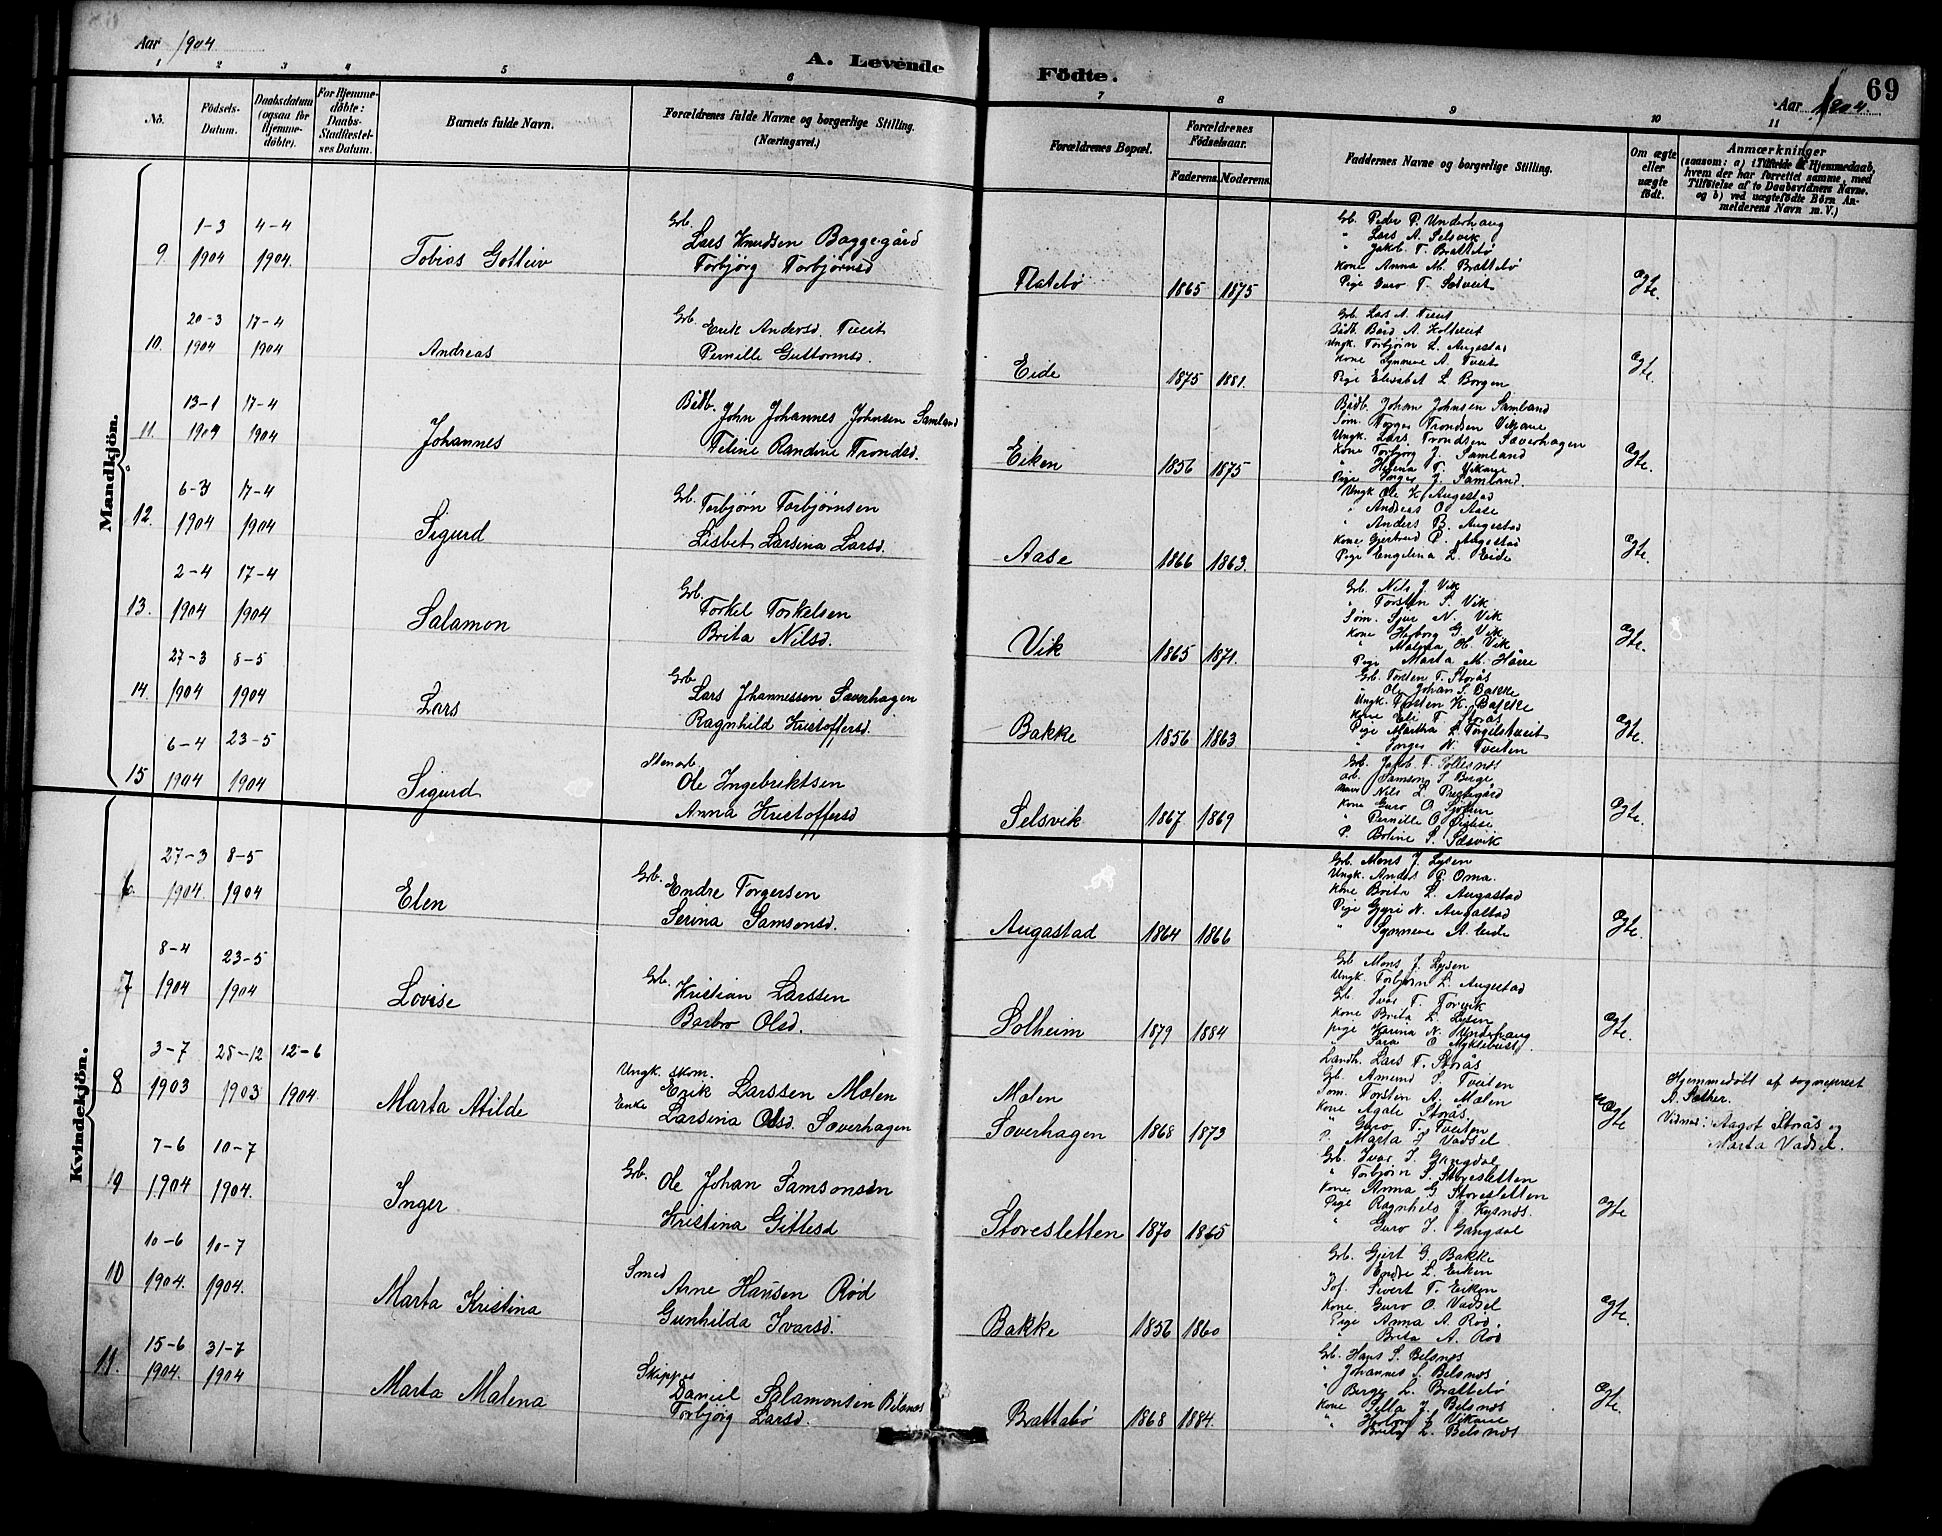 Aar 1904
A. Levende Födte.
Aar 1904.
69
1 2 3 4 5 6 7 8 9 10 11
No.
Födsels-Datum.
Daabsdatum (ogsaa för Hjemme-döbte).
For Hjemme-döbte: Daabs-Stadfæstelses Datum.
Barnets fulde Navn.
Forældrenes fulde Navne og borgerlige Stilling. (Næringsvei.)
Forældrenes Bopæl.
Forældrenes Födselsaar.
Faderens. Moderens.
Faddernes Navne og borgerlige Stilling.
Om ægte eller uægte födt.
Anmærkninger
(saasom: a) i Tilfælde af Hjemmedaab, hvem der har forrettet samme, med Tilföielse af to Daabsvidners Navne, og b) ved uægtefödte Börn Anmelderens Navn m. V.)
Mandkjön.
9. 1-3 1904 4-4 1904.
Tobias Gotliev
Grb. Lars Knudsen Baggegård
Torbjörg Torbjörnsd
Flatebö 1865 1875
Grb. Peder P. Underhaug
" Lars A. Selsvik
" Jakob T. Brattebö
Kone Anna M. Brattebö
Pige Guro T. Sætveit
Ægte.
10. 20-3 1904 17-4 1904
Andreas
Grb. Erik Andersd. Tveit
Pernille Guttormsd.
Eide 1875 1881.
Grb. Lars A. Tveit
Bådb. Bård A. Holtveit
Ungk. Torbjörn L. Augestad
Kone Synneve A. Tveit
Pige Elisabet L. Borgen
Ægte.
11. 13-1 1904 17-4 1904
Johannes
Bådb. John Johannes Johnsen Samland
Teline Randine Trondsd.
Eiken 1856 1875
Bådb. Johan Johnsen Samland
Söm. Torges Trondsen Vikane
Ungk. Lars Trondsen Saverhagen
Kone Torbjörg J. Samland
" Helena T. Vikane
Pige Inger J. Samland.
Ægte.
12. 6-3 1904 17-4 1904
Sigurd
Grb. Torbjörn Torbjörnsen
Lisbet Larsina Larsd.
Aase 1866 1863.
Ungk Ole K. Augestad
" Andreas O. Aase
" Anders B. Augestad
Kone Gjertrud P. Augestad
Pige Engelina L. Eide
Ægte.
13. 2-4 1904 17-4 1904
Salamon
Grb. Torkel Torkelsen
Brita Nilsd.
Vik 1865 1871.
Grb. Nils J. Vik
" Torsten S. Vik
Söm. Sjur N. Vik
Kone Herborg G. Vik
" Malena O. Vik
Pige Marta M. Håvre
Ægte.
14. 27-3 1904 8-5 1904
Lars
Grb Lars Johannessen Saverhagen
Ragnhild Kristoffersd.
Bakke 1856 1863
Grb. Torsten T. Storås
" Ole Johan S. Bakke
Ungk. Torsten K. Bakke
Kone Eli T. Storås
Pige Martha L. Torgelstveit
" Inger N. Tveiten
Ægte.
15 6-4 1904 23-5 1904
Sigurd
Stenarb Ole Ingebriktsen
Anna Kristoffersd
Selsvik 1867 1869
Grb. Jakob T. Follesnös
Arb. Samson J. Berge
Nils L. Prestegård
Kone Guro O. Sjohein
" Pernille O.
P. Boline S. Sæsvik
Ægte.
Kvindekjön.
6. 27-3 1904. 8-5 1904
Elen
Grb. Endre Torgersen
Serina Samsonsd.
Augastad 1864 1866
Grb. Mons J. Lysen
Ungk. Anders P. Oma.
Kone Brita L. Augastad
Pige Gyri N. Augastad
" Synneve A. Eide
Ægte.
7 8-4 1904 23-5 1904
Lovise
Grb. Kristian Larssen
Barbro Olsd.
Solheim 1879 1884
Grb Mons J. Lysen
Ungk. Torbjørn L. Augestad
Grb. Ivar T. Torvik
Kone Brita L. Lysen
pige Karina N. Underhaug
" Sara O. Myklebust
Ægte.
8 3-7 1903 28-12 1903 12-6 1904
Marta Atilde
Ungk. skom. Erik Larssen Malen
Enke Larsina Olsd. Saverhagen
Malen
Saverhagen 1868 1873
Landh. Lars T. Storås
Grb. Amund S. Tveiten
Söm. Torsten A. Malen
Kone Agate Storås
" Guro T. Tveiten
P. Marta J. Vadsel
uÆgte
Hjemmedöbt af sogneprest
A. Sæther.
Vidner: Aagot Storås og
Marta Vadsel.
9 7-6 1904 10-7 1904.
Inger
Grb. Ole Johan Samsonsen
Kristina Gittlesd
Storesletten 1870 1865
Grb. Ivar J. Gangdal
" Torbjörn S. Storesletten
Kone Anna G. Storesletten
Pige Ragnhild J. Kysnös.
" Guro J. Gangdal
Ægte
10 10-6 1904. 10-7 1904.
Marta Kristina
Smed Arne Hansen Röd
Gunhilda Ivarsd.
Bakke 1856 1860
Grb. Gjert G. Bakke
" Endre L. Eiken
Sivert T. Eiken
Kone. Guro O. Vadsel
Pige Anna A. Röd.
" Brita A. Röd
Ægte.
11. 15-6 1904. 31-7 1904
Marta Malena
Skipper Daniel Salamonsen Belsnes
Torbjörg Larsd.
Brattabö 1868 1884.
Grb. Hans S. Belsnös
" Johannes S. Belsnös
" Berge L. Brattebö
Kone Pella J. Belsnös
" Herborg L. Vikane
" Brita L. Belsnös
Ægte.